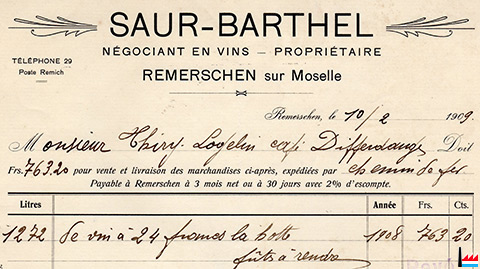 SAUR-BARTHEL
NÉGOCIANT EN VINS — PROPRIÉTAIRE
TÉLÉPHONE 29
Poste Remich
REMERSCHEN sur Moselle
Remerschen, le 10/2 1909.
Monsieur Thiry-Logelin café Differdange Doit
Frs. 763.20 pour vente et livraison des marchandises ci-après, expédiées par chemin de fer
Payable à Remerschen à 3 mois net ou à 30 jours avec 2% d'escompte.
Litres Année Frs. Cts.
1272 de vin à 24 francs la hotte 1908 763 20
fûts à rendre